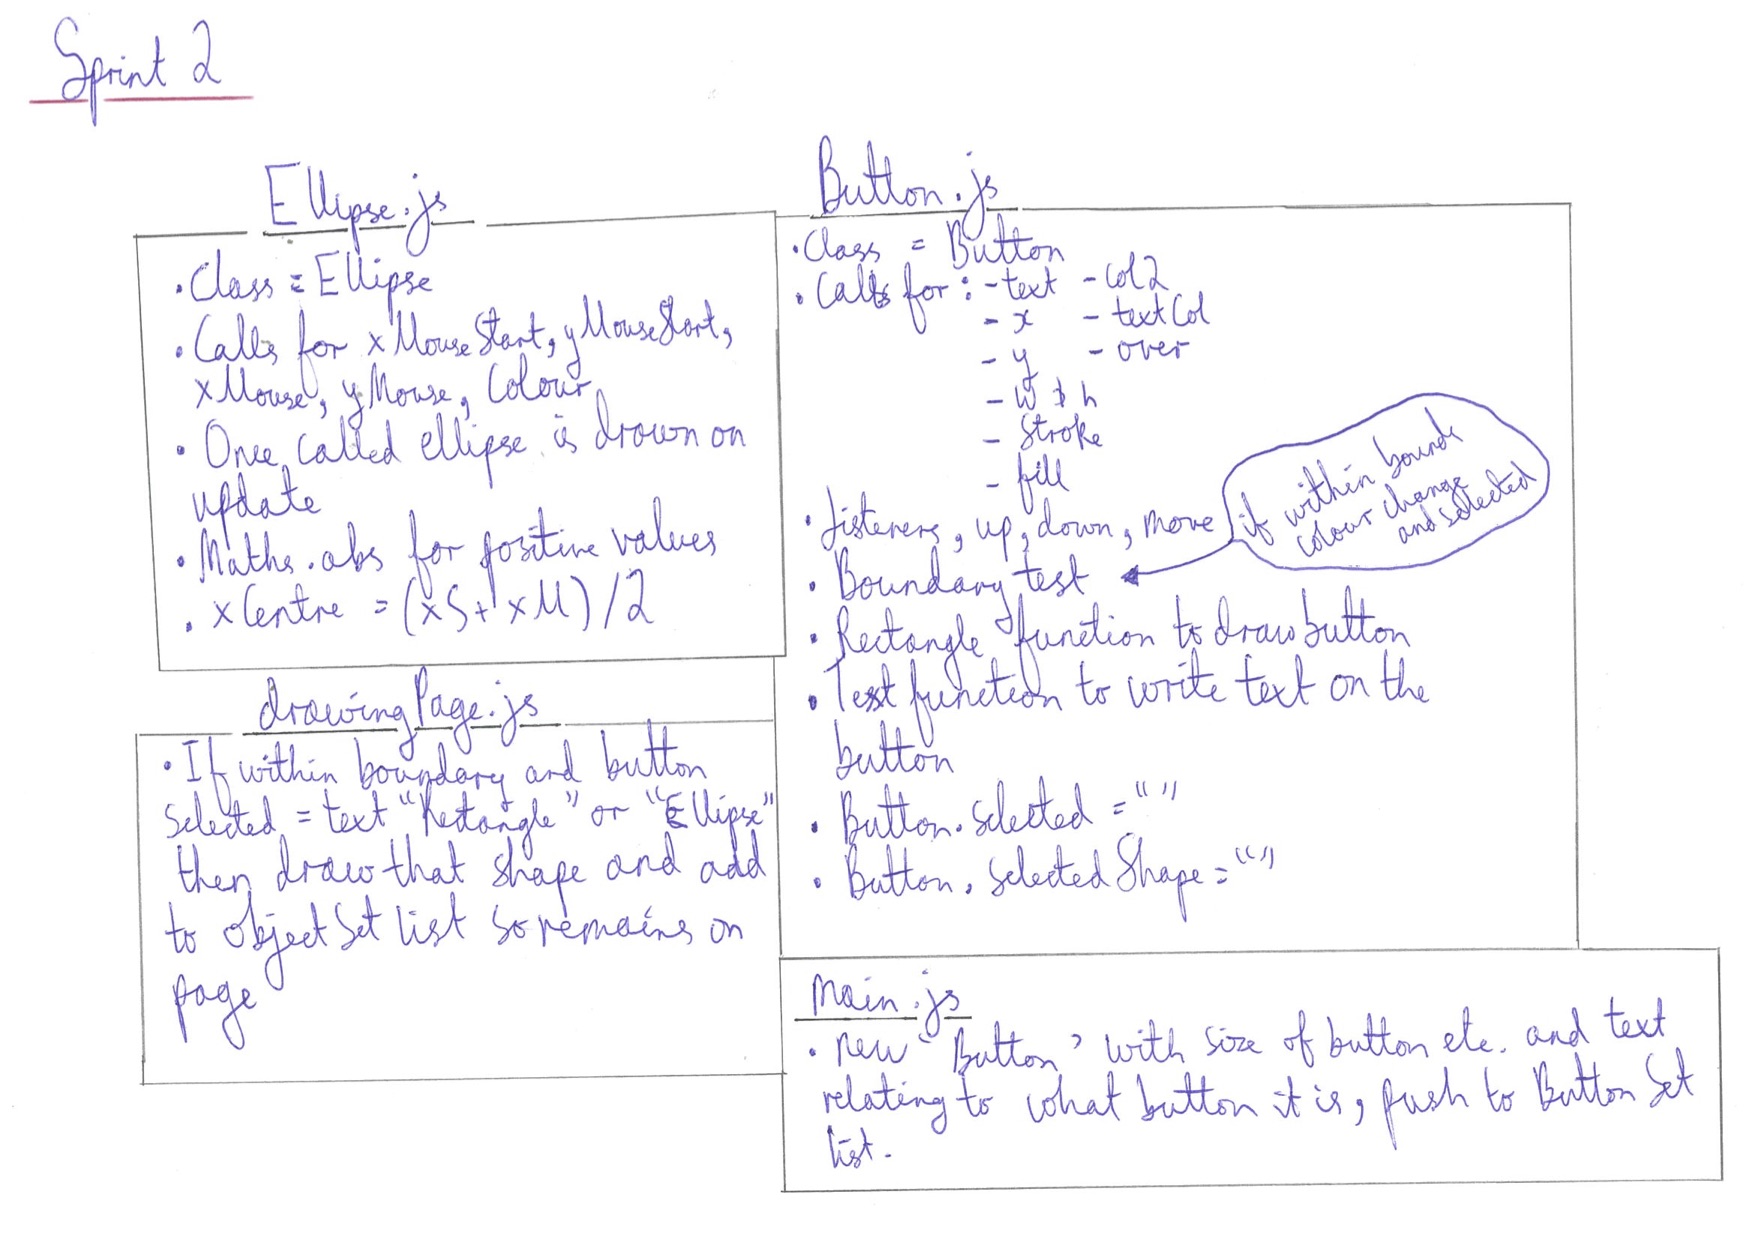 Sprint 2
Ellipse.js
• Class = Ellipse
• Calls for xMouseStart, yMouseStart,
xMouse, yMouse, Colour
• Once called ellipse is drawn on
update
• Maths.abs for positive values
• xCentre = (xS + xM)/2
drawingPage.js
• If within boundary and button
Selected = text "Rectangle" or "Ellipse"
then draw that shape and add
to objectSet list so remains on
page
Button.js
• Class = Button
• Calls for : - text - col2
- x - textCol
- y - over
- w & h
- Stroke
- fill
• Listeners, up, down, move
• Boundary test
if within bounds
colour change
and selected
• Rectangle function to draw button
• Text function to write text on the
button
• Button.selected = " "
• Button.selectedShape = " "
Main.js
• new 'Button' with size of button etc. and text
relating to what button it is, push to Button Set
list.